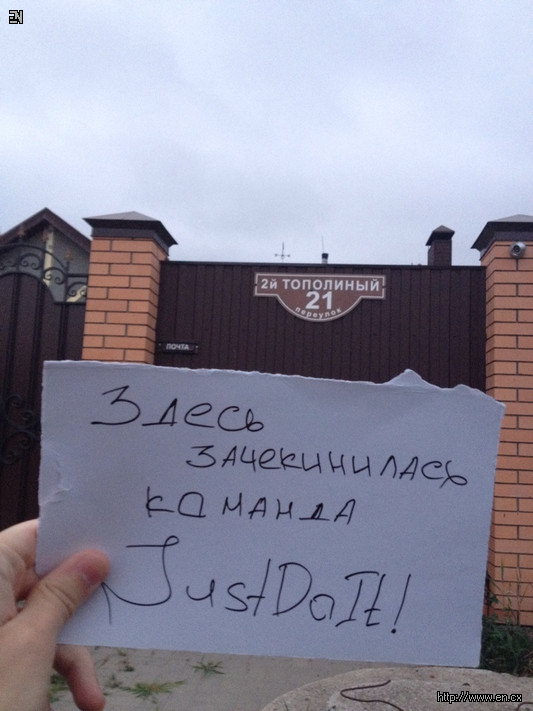 EN
2й ТОПОЛИНЫЙ
21
переулок
ПОЧТА
Здесь
зачекинилась
команда
JustDoIt!
http://www.en.cx